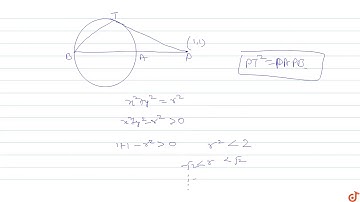 T
(1,1)
B A P
PT² = PA PB
x²+y² = r²
x²+y²-r² > 0
1+1-r² > 0 r² < 2
-√2 < r < √2